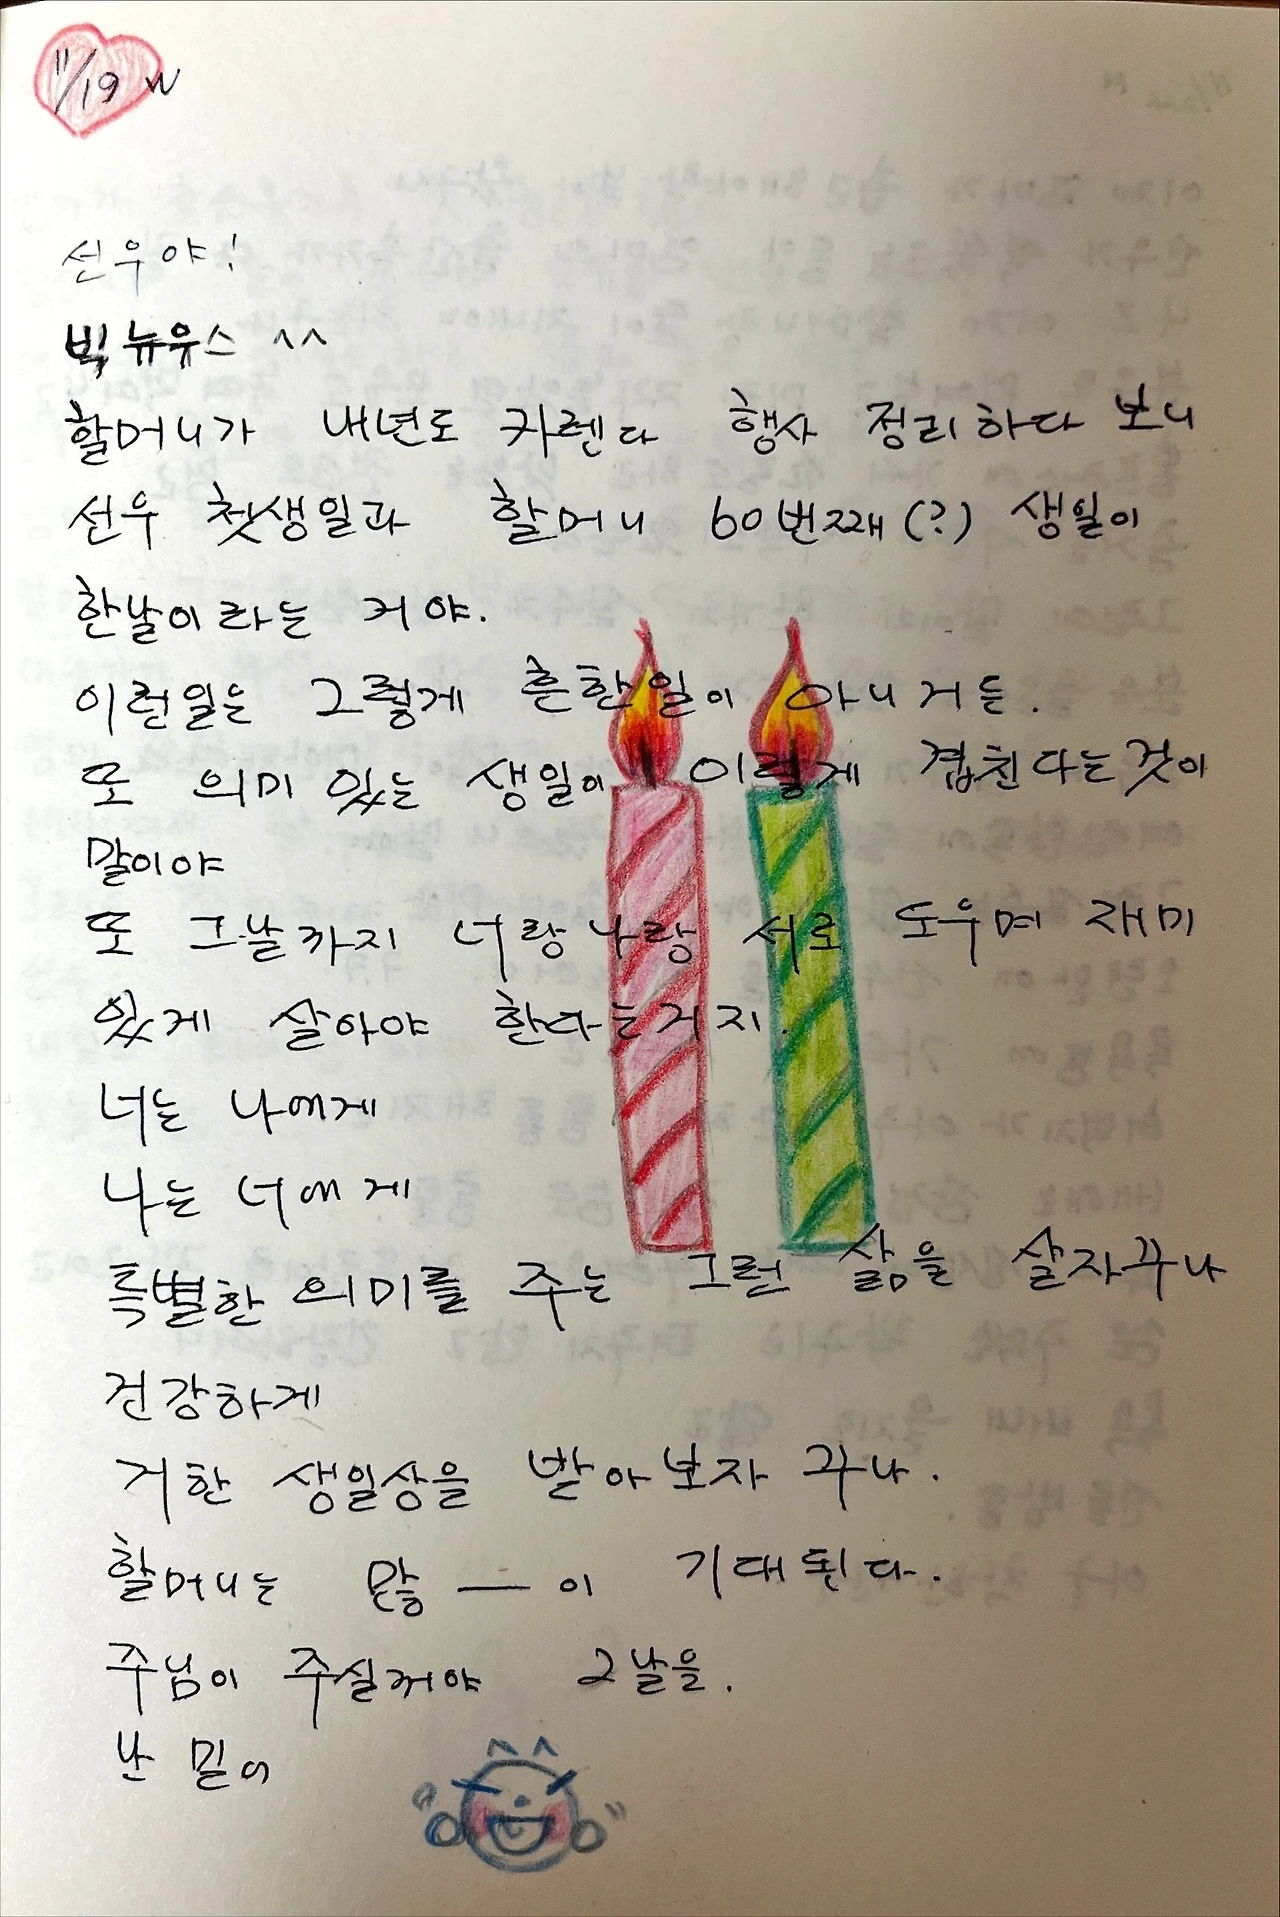 11/19 W
선우야!
빅 뉴우스 ^^
할머니가 내년도 카렌다 행사 정리하다 보니
선우 첫생일과 할머니 60번째(?) 생일이
한날이라는 거야.
이런일은 그렇게 흔한일이 아니거든.
또 의미 있는 생일이 이렇게 겹친다는것이
말이야
또 그날까지 너랑 나랑 서로 도우며 재미
있게 살아야 한다는거지.
너는 나에게
나는 너에게
특별한 의미를 주는 그런 삶을 살자꾸나
건강하게
거한 생일상을 받아보자 꾸나.
할머니는 많 — 이 기대된다.
주님이 주실꺼야 그날을.
난 믿어